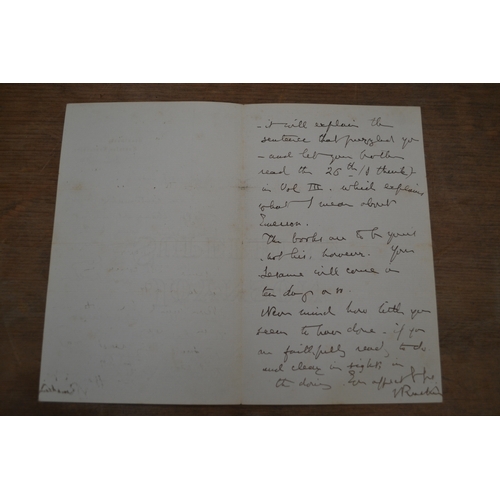 - it will explain the
sentence that puzzled you
- and let your brother
read the 26th (I think)
in Vol III. which explains
what I mean about
Emerson.
The books are to be yours
not his, however. Your
Sesame will come in
ten days or so.
Never mind how little you
seem to have done - if you
are faithfully ready to do
and clear in sight, in
the doing Ever affectly yrs
J Ruskin